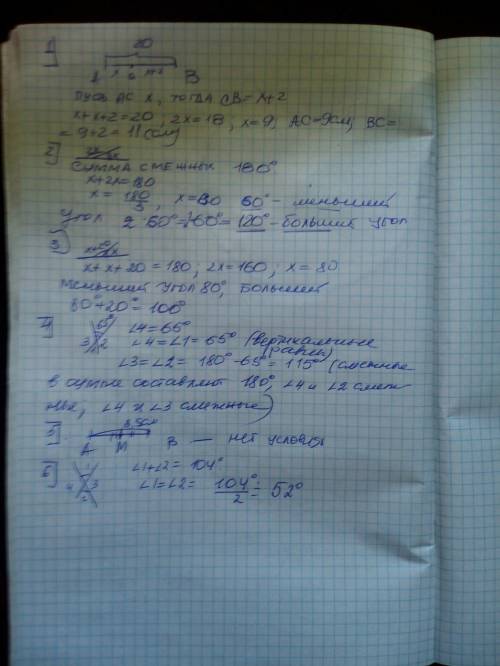 1]
20
A x C x+2 B
пусть AC x, тогда CB = x+2
x+x+2=20; 2x=18, x=9; AC=9см; BC=
=9+2=11(см)
2]
Сумма смежных 180°
x+2x=180
x = 180/3, x=60 60° - меньший
угол 2·60°= 120° - больший угол
3]
x+20 x
x+x+20=180; 2x=160; x=80
меньший угол 80°, больший
80°+20°=100°
4]
65° ∠4=65°
3 1 2 ∠4=∠1=65° (вертикальные равны)
∠3=∠2= 180°-65°=115° (смежные
в сумме составляют 180°, ∠4 и ∠2 смеж-
ные, ∠4 и ∠3 смежные)
5].
A M B — нет условия
6]
∠1+∠2=104°
4 1 3 2 ∠1=∠2= 104°/2 = 52°